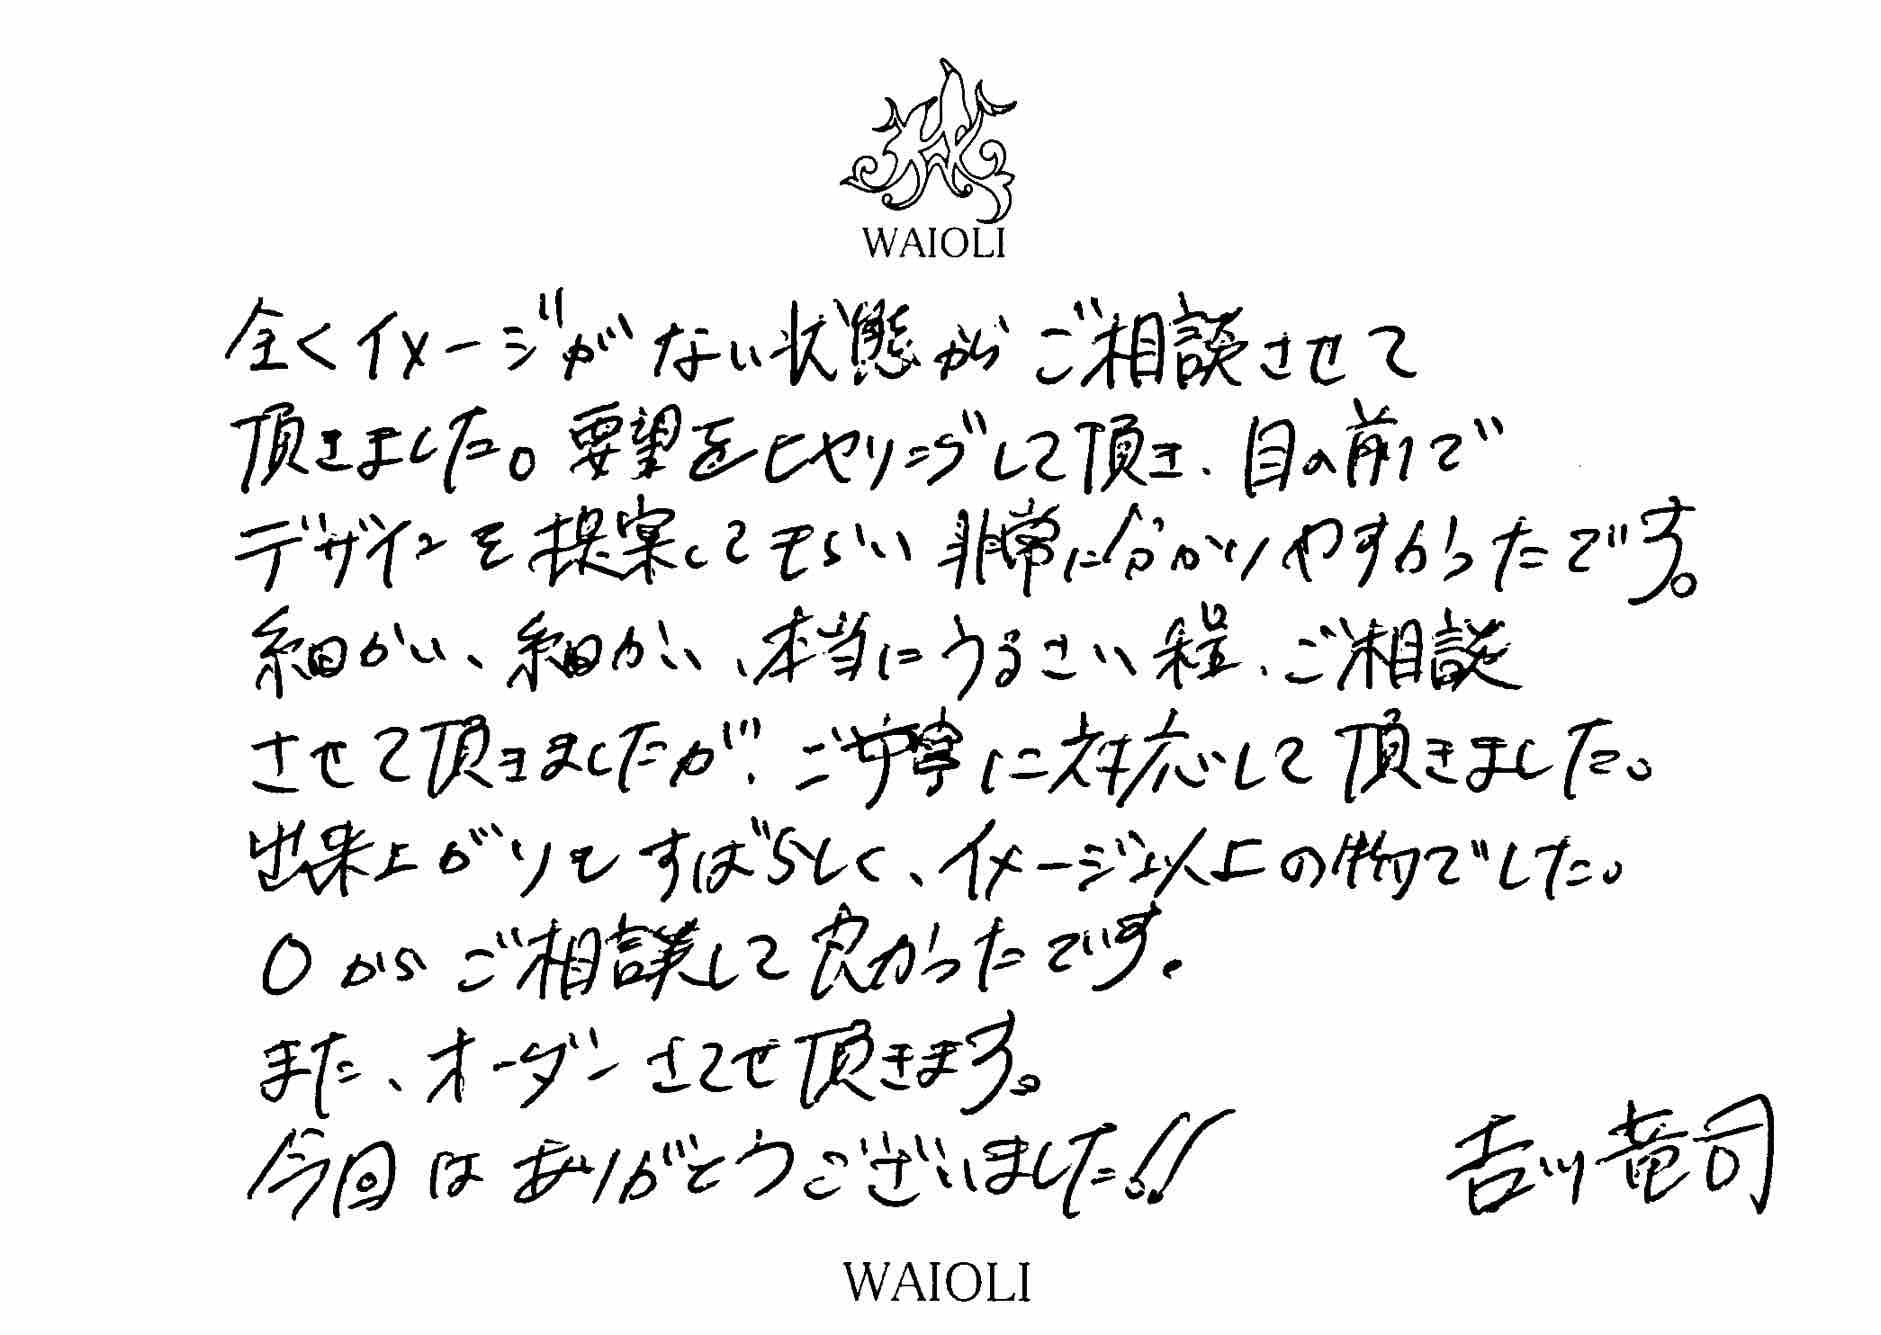 WAIOLI
全くイメージがない状態からご相談させて
頂きました。要望をヒヤリングして頂き、目の前で
デザインを提案してもらい非常に分かりやすかったです。
細かい、細かい、本当にうるさい程、ご相談
させて頂きましたが、ご丁寧に対応して頂きました。
出来上がりもすばらしく、イメージ以上の物でした。
0からご相談して良かったです。
また、オーダーさせて頂きます。
今回はありがとうございました!!
吉川竜司
WAIOLI